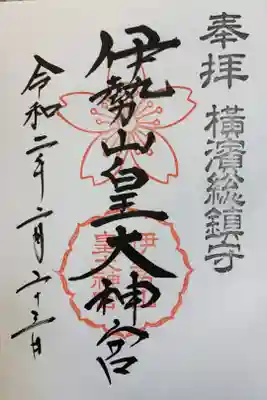 奉拝
横濱総鎮守
伊勢山皇大神宮
令和二年二月二十三日